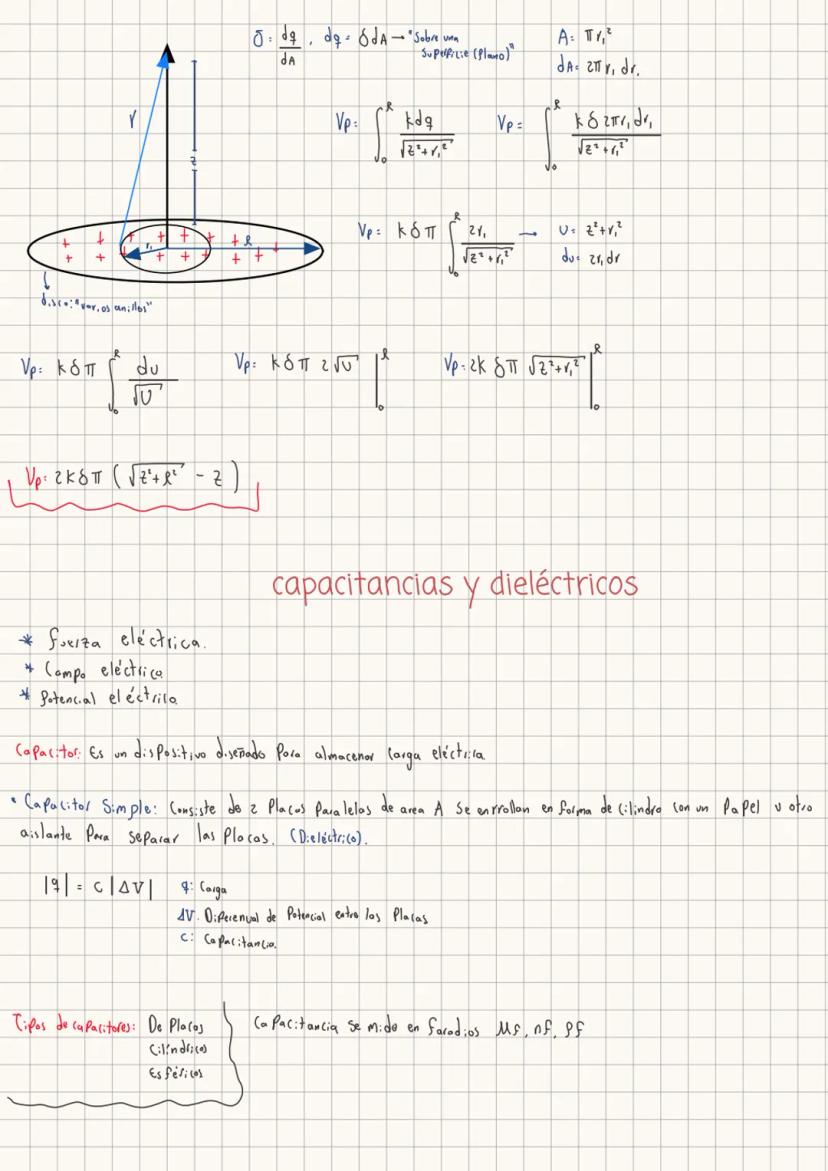 δ = dq/dA , dq = δdA → "Sobre una Superficie (Plano)"
A = πr₁²
dA = 2πr₁ dr₁
r
z
Vp = ∫₀ᴿ kdq/√(z²+r₁²)
Vp = ∫₀ᴿ kδ2πr₁dr₁/√(z²+r₁²)
r₁
R
disco: "varios anillos"
Vp = kδπ ∫₀ᴿ 2r₁/√(z²+r₁²) →
u = z²+r₁²
du = 2r₁dr
Vp = kδπ ∫₀ᴿ du/√u
Vp = kδπ 2√u |₀ᴿ
Vp = 2kδπ √(z²+r₁²) |₀ᴿ
Vp = 2kδπ (√(z²+R²) - z)
capacitancias y dieléctricos
* fuerza eléctrica.
* Campo eléctrico
* Potencial eléctrico
Capacitor: Es un dispositivo diseñado Para almacenar Carga eléctrica
• Capacitor Simple: Consiste de 2 Placas Paralelas de area A Se enrrollan en forma de Cilindro con un Papel u otro
aislante Para separar las Placas. (Dieléctrico).
|q| = C|ΔV|
q: Carga
ΔV: Diferencial de Potencial entre las Placas
C: Capacitancia.
Tipos de capacitores: De Placas
Cilíndricos
Esféricos
Capacitancia Se mide en faradios Mf, nf, pf